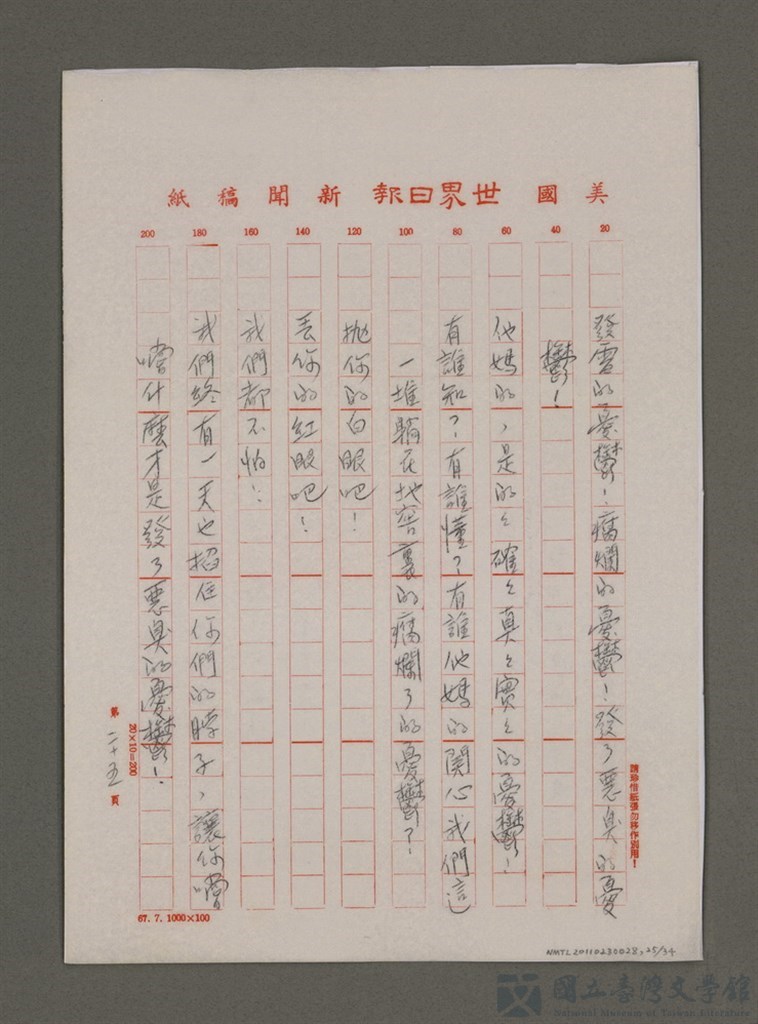 美國世界日報新聞稿紙
20 40 60 80 100 120 140 160 180 200
發霉的憂鬱！腐爛的憂鬱！發了惡臭的憂
鬱！
他媽的，是的々確々真々實々的憂鬱！
有誰知？有誰懂？有誰他媽的關心我們這
一堆躺在地窖裏的腐爛了的憂鬱？
拋你的白眼吧！
丟你的紅眼吧！
我們都不怕！
我們終有一天也招住你們的脖子，讓你嚐
嚐什麼才是發了惡臭的憂鬱！
請珍惜紙張勿移作別用！
20×10=200
第二十五頁
67.7.1000×100
NMTL20110230028,25/34
國立臺灣文學館
National Museum of Taiwan Literature